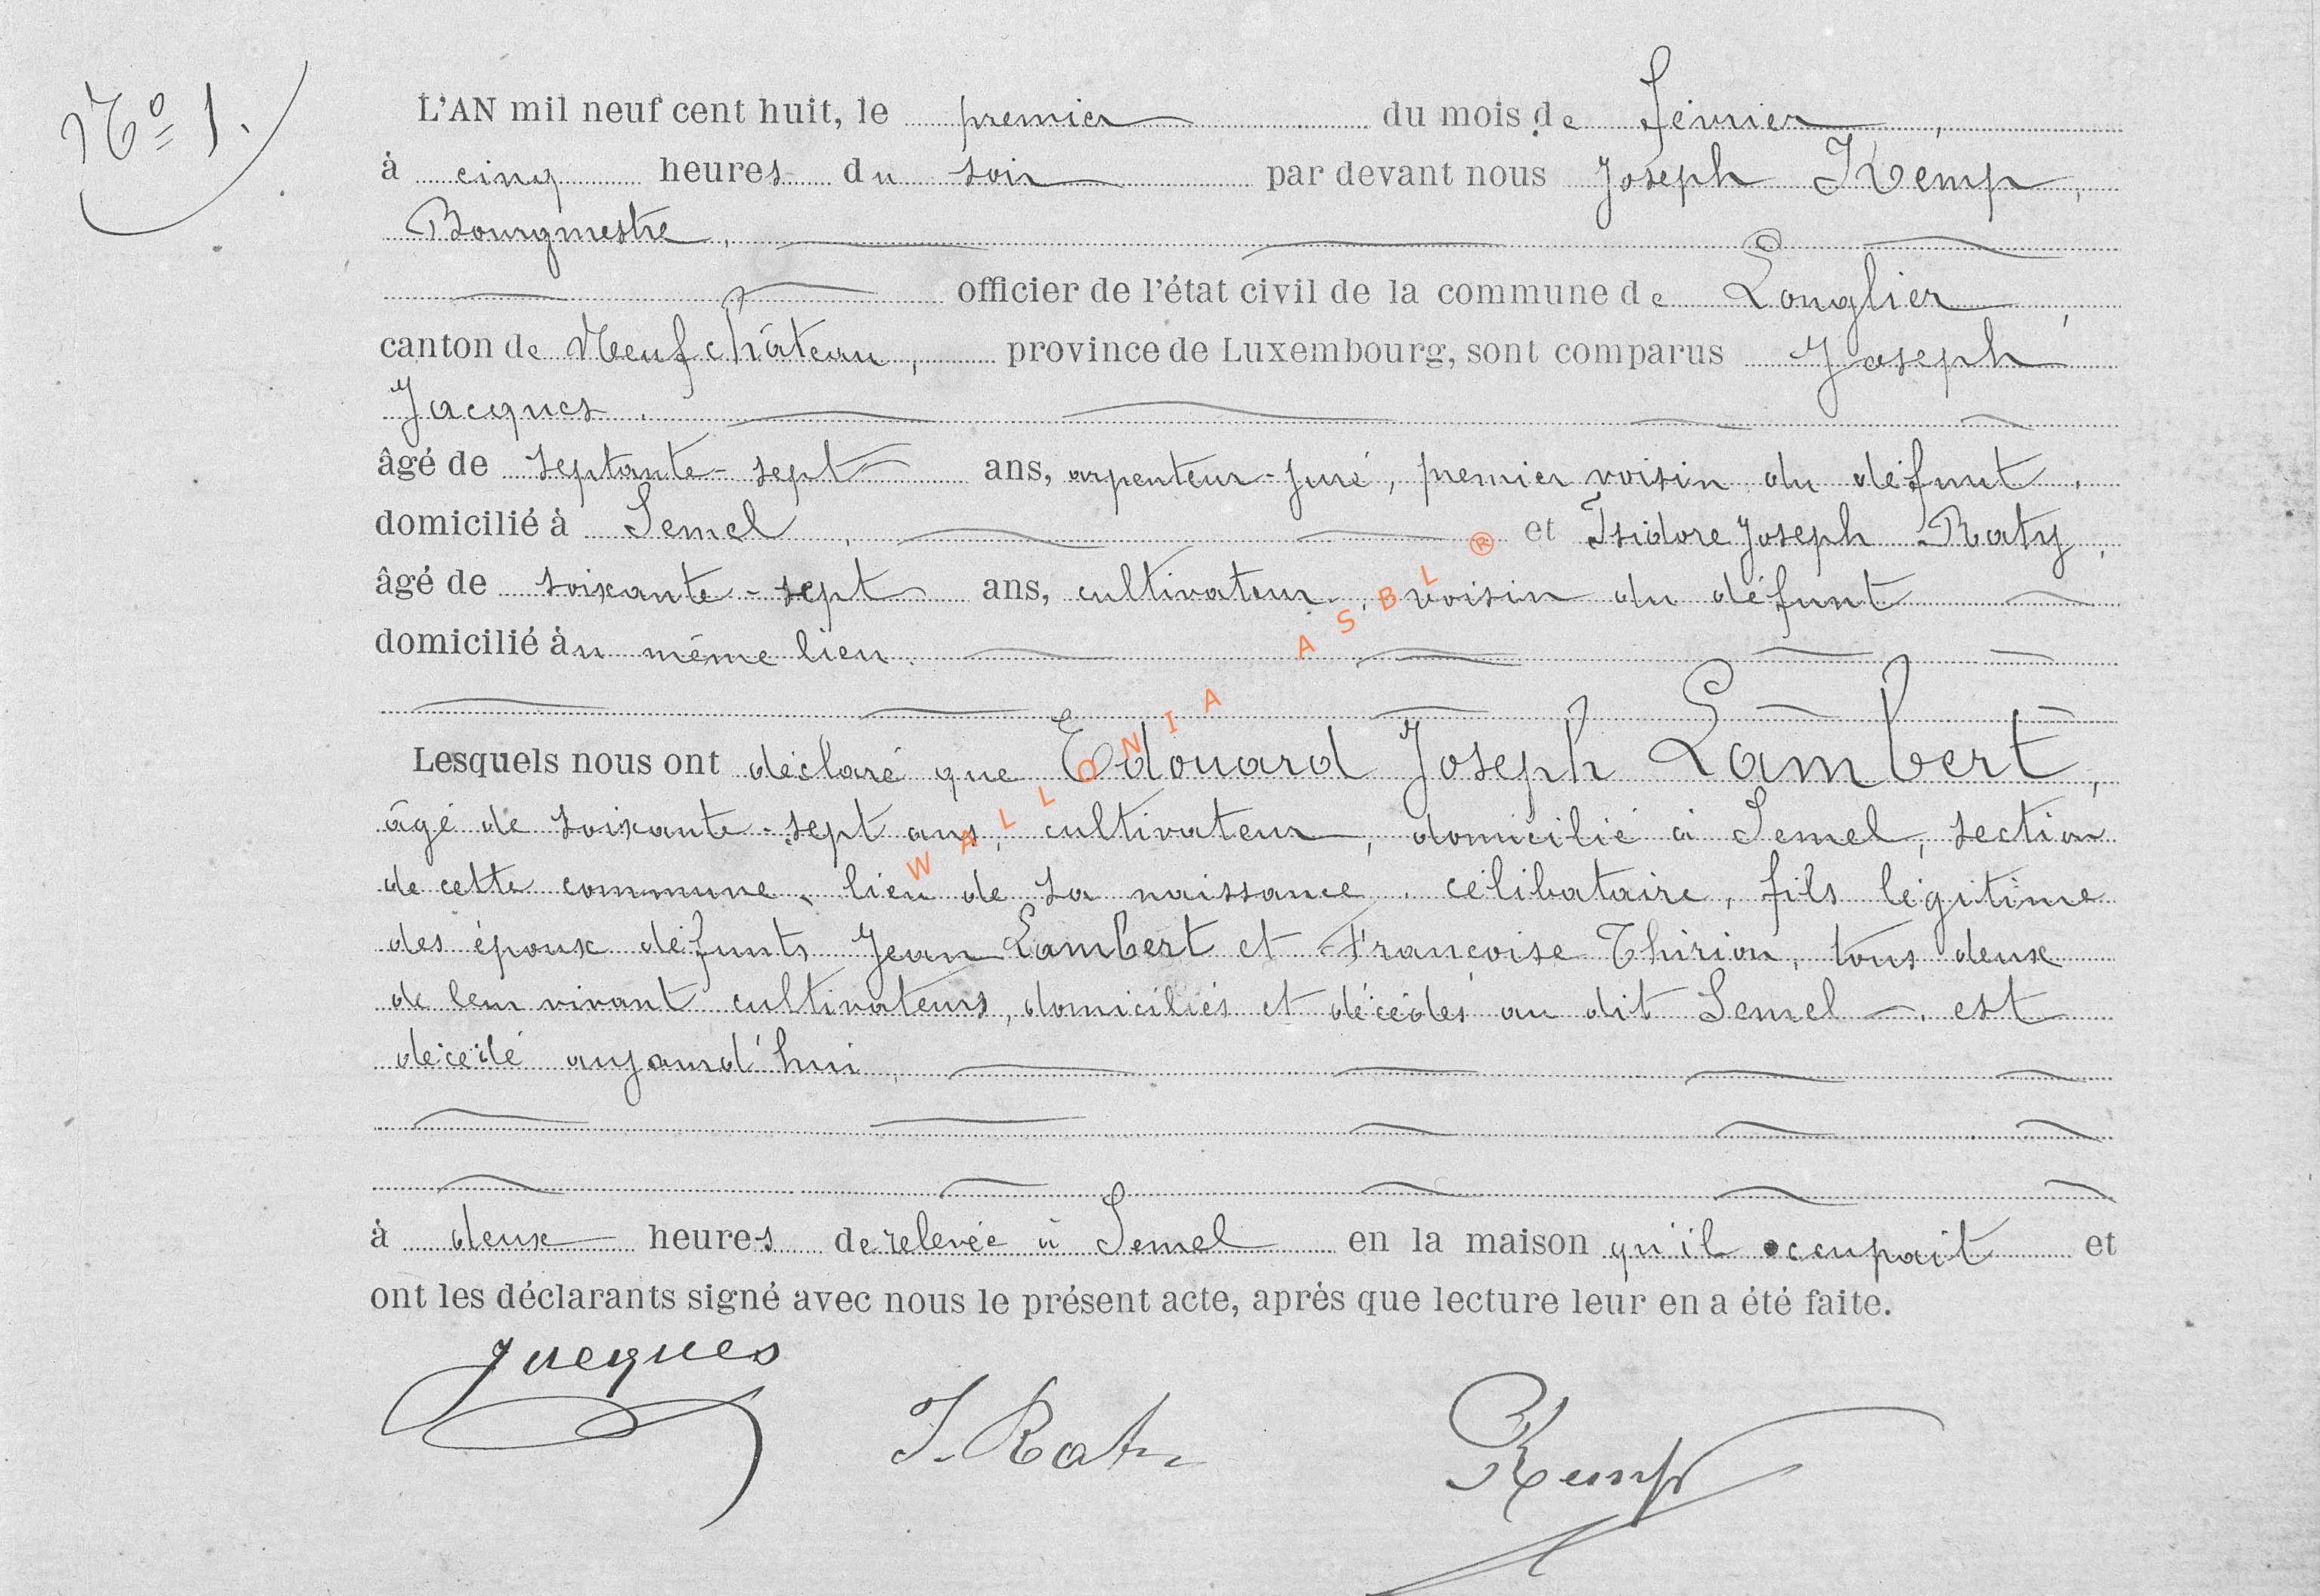 No 1.
L'AN mil neuf cent huit, le premier du mois de février,
à cinq heures du soir par devant nous Joseph Kemp,
Bourgmestre,
officier de l'état civil de la commune de Longlier,
canton de Neufchâteau, province de Luxembourg, sont comparus Joseph
Jacques,
âgé de septante-sept ans, arpenteur-juré, premier voisin du défunt,
domicilié à Semel, et Isidore Joseph Raty,
âgé de soixante-sept ans, cultivateur, voisin du défunt
domicilié au même lieu.
Lesquels nous ont déclaré que Edouard Joseph Lambert,
âgé de soixante-sept ans, cultivateur, domicilié à Semel, section
de cette commune, lieu de sa naissance, célibataire, fils légitime
des époux défunts Jean Lambert et Françoise Thirion, tous deux
de leur vivant cultivateurs, domiciliés et décédés au dit Semel, est
décédé aujourd'hui,
à deux heures de relevée à Semel en la maison qu'il occupait et
ont les déclarants signé avec nous le présent acte, après que lecture leur en a été faite.
Jacques
J. Raty
Kemp
WALLONIA ASBL ®